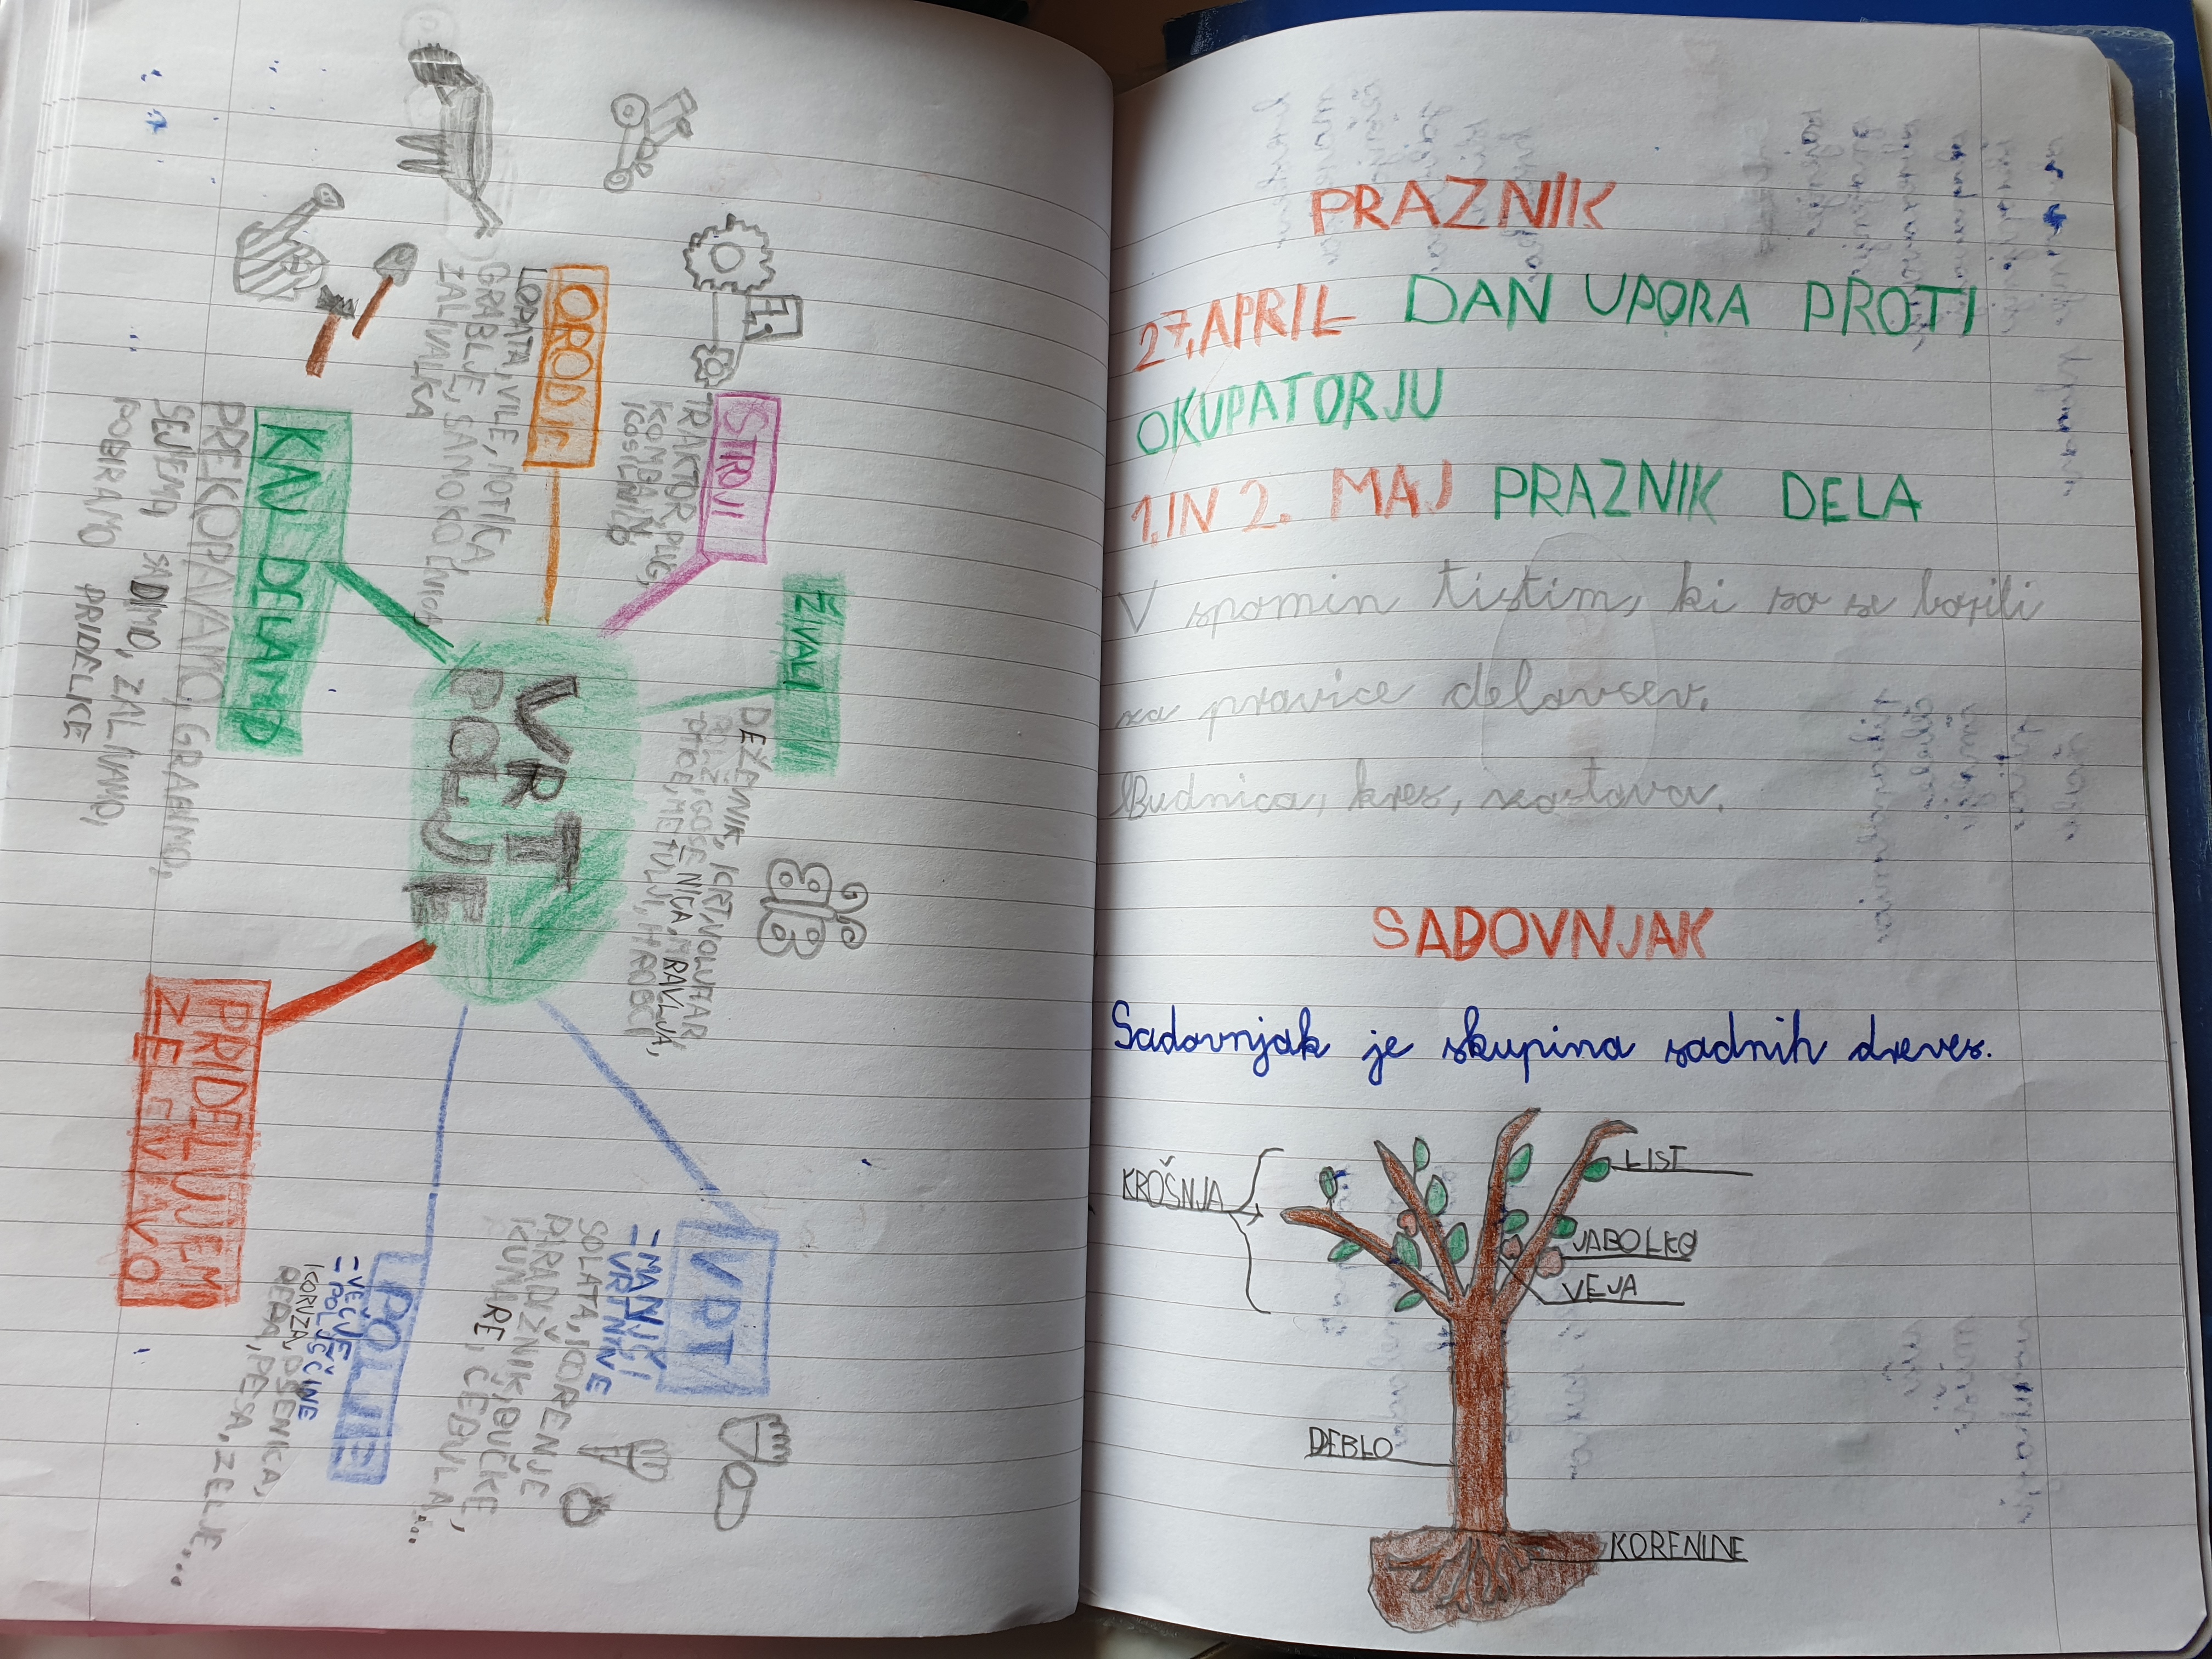 VRT
POLJE
ORODJE
LOPATA, VILE, MOTIKA,
GRABLJE, SAMOKOLNICA,
ZALIVALKA
STROJI
TRAKTOR, PLUG,
KOMBAJN,
KOSILNICA
ŽIVALI
DEŽEVNIK, KRT, VOLUHAR
POLŽ, GOSENICA, MRAVLJA,
PTICE, METULJI, HROŠČI
KAJ DELAMO
PREKOPAVAMO, GRABIMO,
SEJEMO SADIMO, ZALIVAMO,
POBIRAMO PRIDELKE
PRIDELUJEMO
ZELENJAVO
VRT
- MANJŠI
- VRTNINE
SOLATA, KORENJE
PARADIŽNIK, BUČKE,
KUMARE, ČEBULA...
POLJE
- VEČJE
- POLJŠČINE
KORUZA, PŠENICA,
REPA, PESA, ZELJE...
PRAZNIK
27. APRIL DAN UPORA PROTI
OKUPATORJU
1. IN 2. MAJ PRAZNIK DELA
V spomin tistim, ki so se borili
za pravice delavcev.
Budnica, kres, zastava.
SADOVNJAK
Sadovnjak je skupina sadnih dreves.
LIST
KROŠNJA
JABOLKO
VEJA
DEBLO
KORENINE